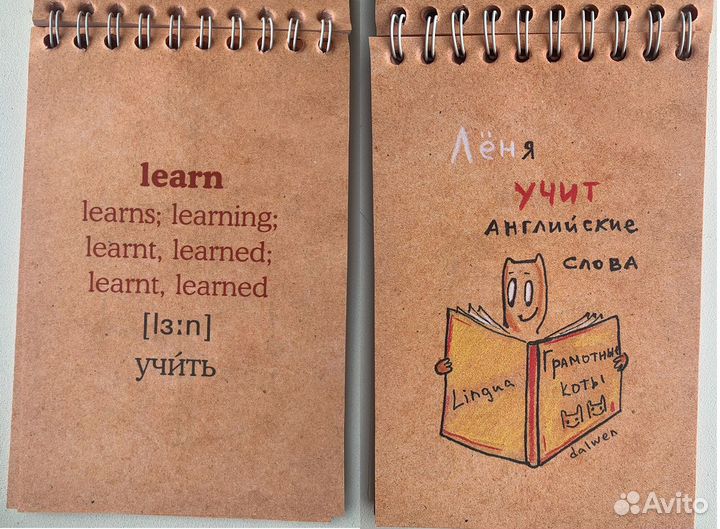 learn
learns; learning;
learnt, learned;
learnt, learned
[lɜːn]
учи́ть
Лёня
учит
английские
слова
Lingua
Грамотные
коты
dalwen
Avito